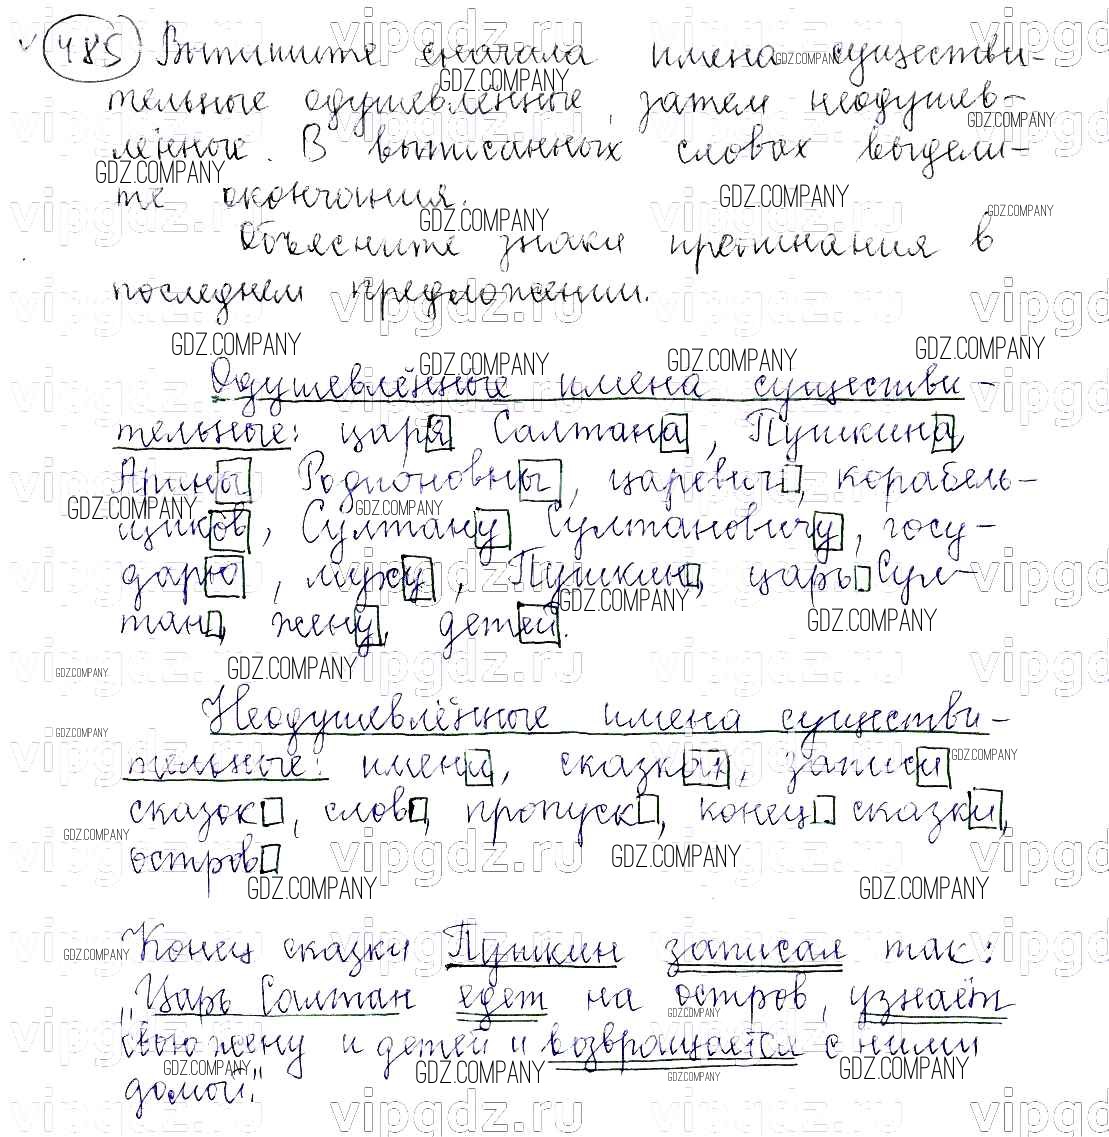 485 Выпишите сначала имена существи-
тельные одушевлённые, затем неодушев-
лённые. В выписанных словах выдели-
те окончания.
Объясните знаки препинания в
последнем предложении.
Одушевлённые имена существи-
тельные: царя Салтана, Пушкина,
Арины Родионовны, царевич, корабель-
щиков, Султану Султановичу, госу-
дарю, мужу, Пушкин, царь Сул-
тан, жену, детей.
Неодушевлённые имена существи-
тельные: имени, сказках, записи
сказок, слов, пропуск, конец сказки,
остров
Конец сказки Пушкин записал так:
"Царь Салтан едет на остров, узнаёт
свою жену и детей и возвращается с ними
домой."